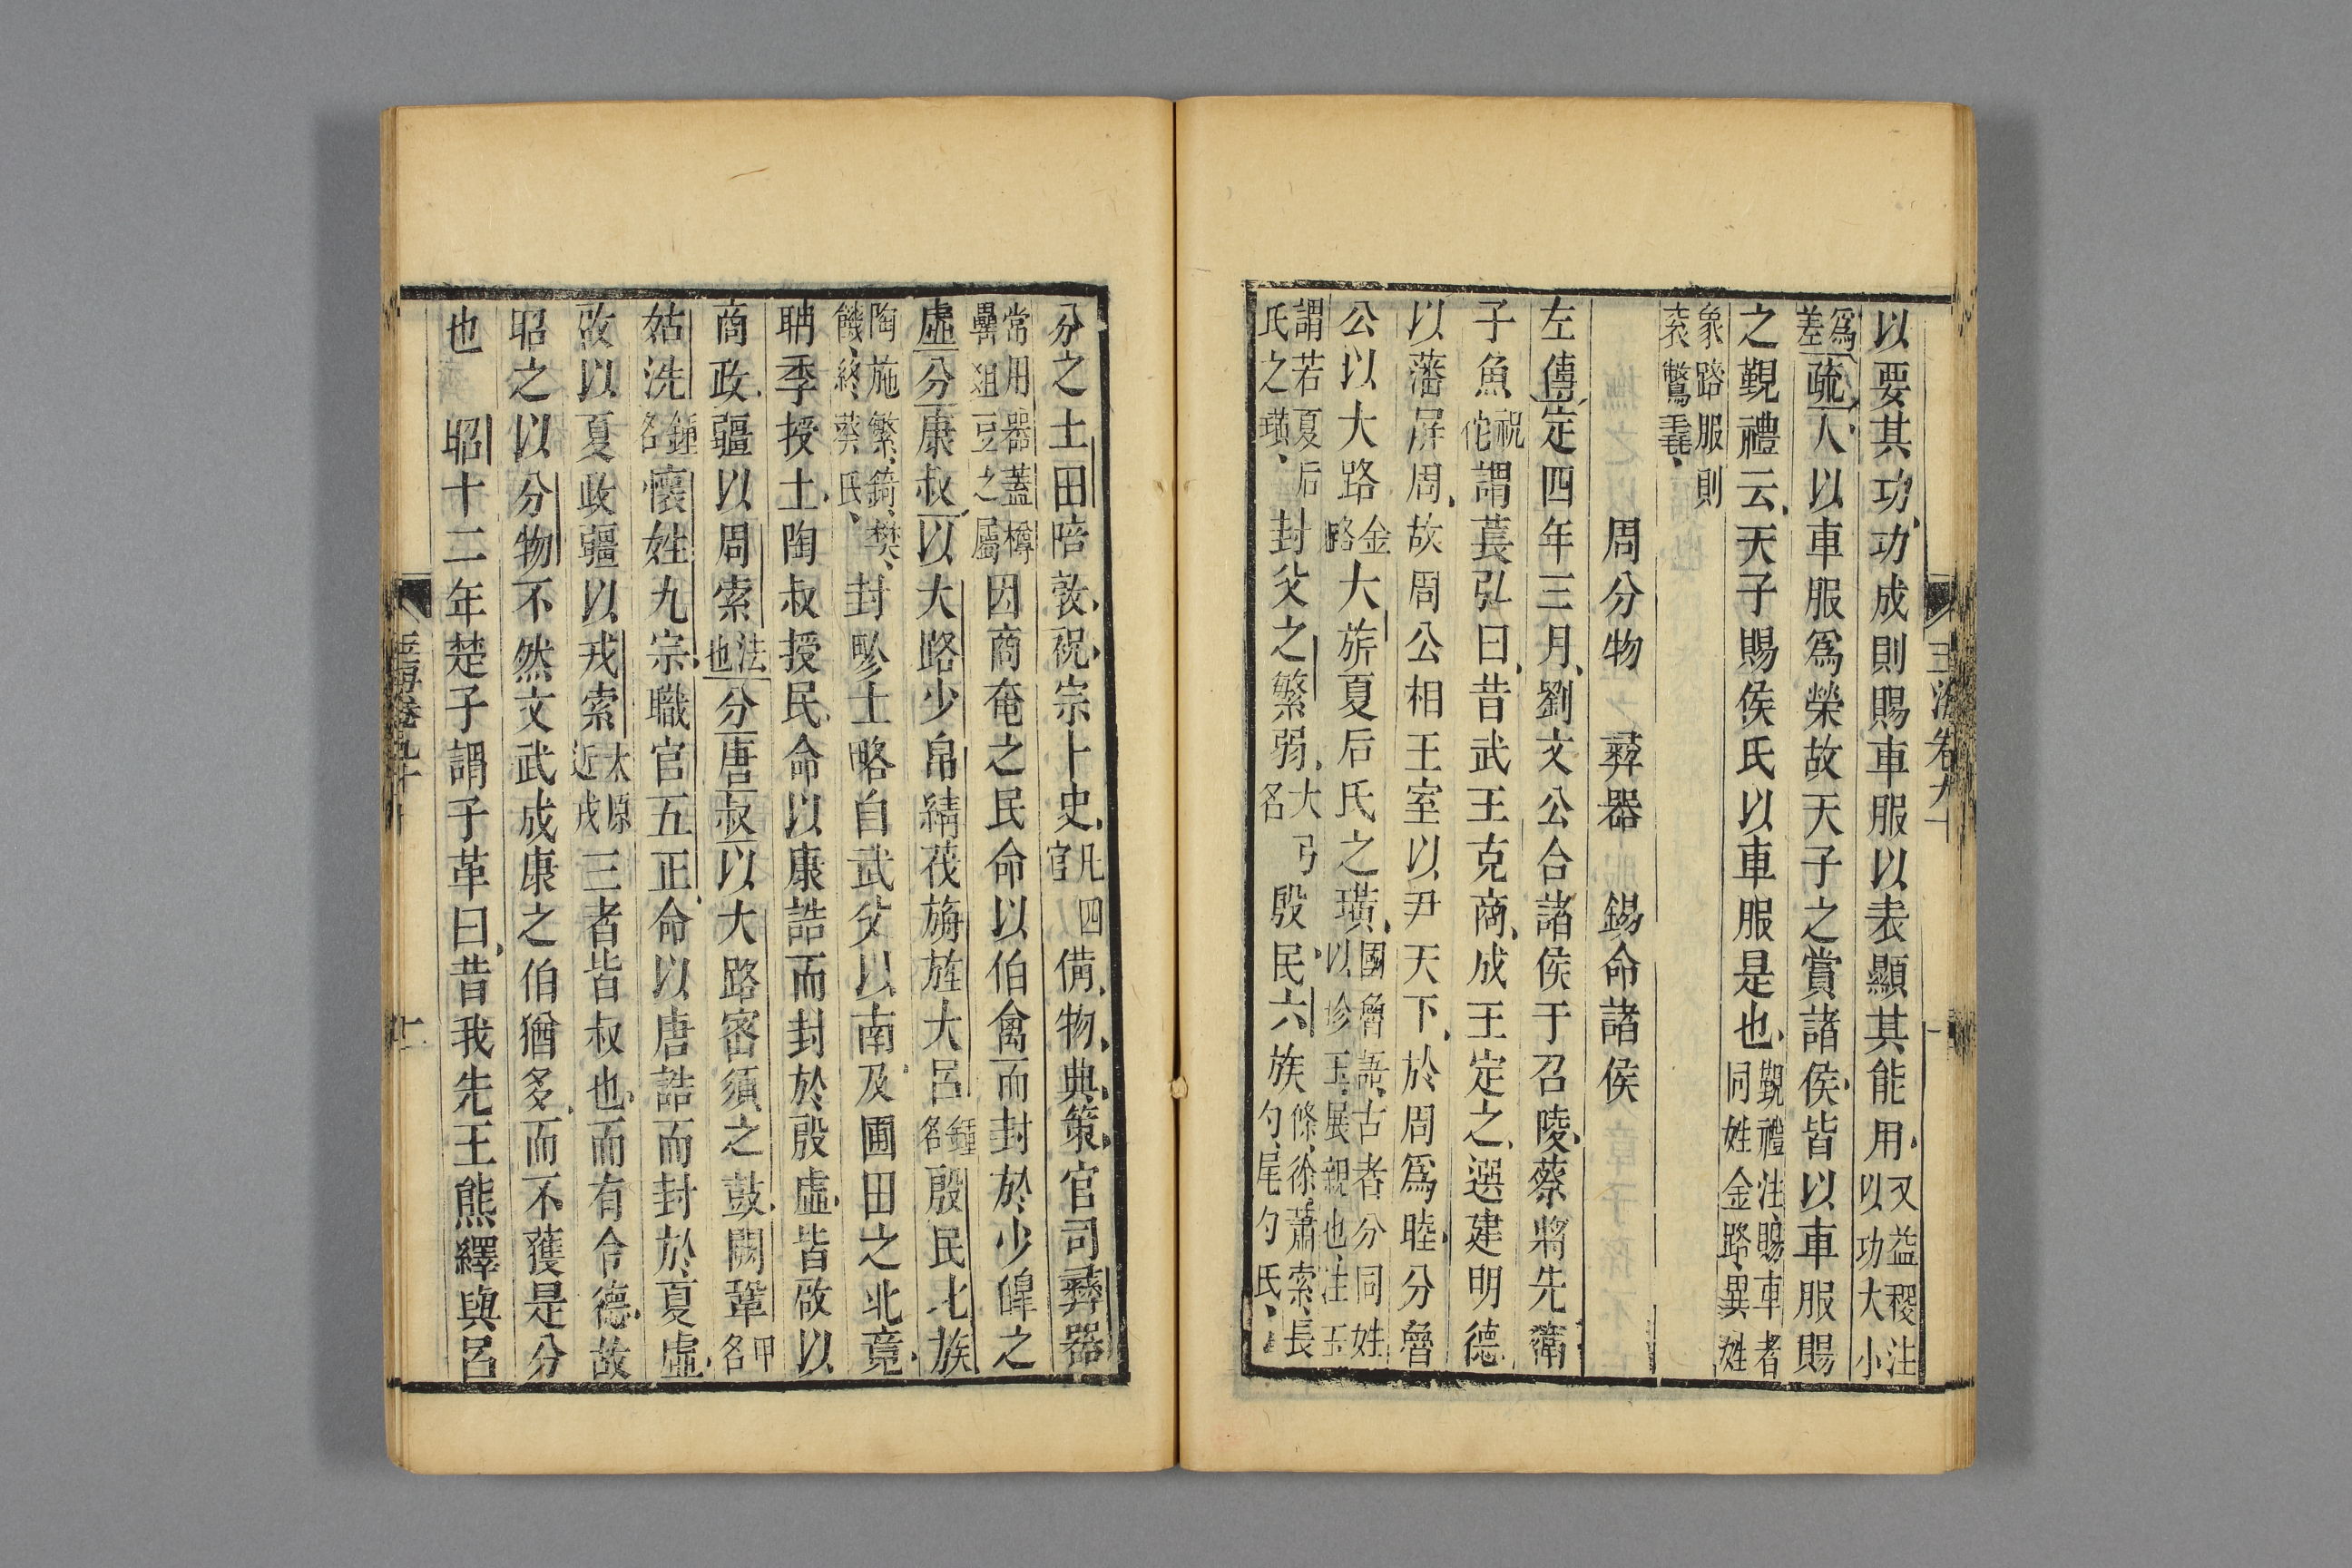 以要其功功成則賜車服以表顯其能用又益稷注以功大小
爲差疏人以車服爲榮故天子之賞諸侯皆以車服賜
之覲禮云天子賜侯氏以車服是也覲禮注賜車者同姓金路異姓
象路服則衮鷩毳
周分物 彝器 錫命諸侯
左傳定四年三月劉文公合諸侯于召陵蔡將先衛
子魚祝佗謂萇弘曰昔武王克商成王定之選建明德
以藩屏周故周公相王室以尹天下於周爲睦分魯
公以大路金路大旂夏后氏之璜國魯語古者分同姓以珍玉展親也注玉
謂若夏后氏之璜封父之繁弱大弓名殷民六族條徐蕭索長勺尾勺氏
分之土田陪敦祝宗卜史凡四官備物典策官司彝器
常用器蓋樽罍俎豆之屬因商奄之民命以伯禽而封於少皥之
虛分康叔以大路少帛綪茷旃旌大呂鍾名殷民七族
陶施繁錡樊饑終葵氏封畛土略自武父以南及圃田之北竟
聃季授土陶叔授民命以康誥而封於殷虛皆啟以
商政疆以周索法也分唐叔以大路密須之鼓闕鞏甲名
姑洗鍾名懷姓九宗職官五正命以唐誥而封於夏虛
啟以夏政疆以戎索太原近戎三者皆叔也而有令德故
昭之以分物不然文武成康之伯猶多而不獲是分
也 昭十二年楚子謂子革曰昔我先王熊繹與呂